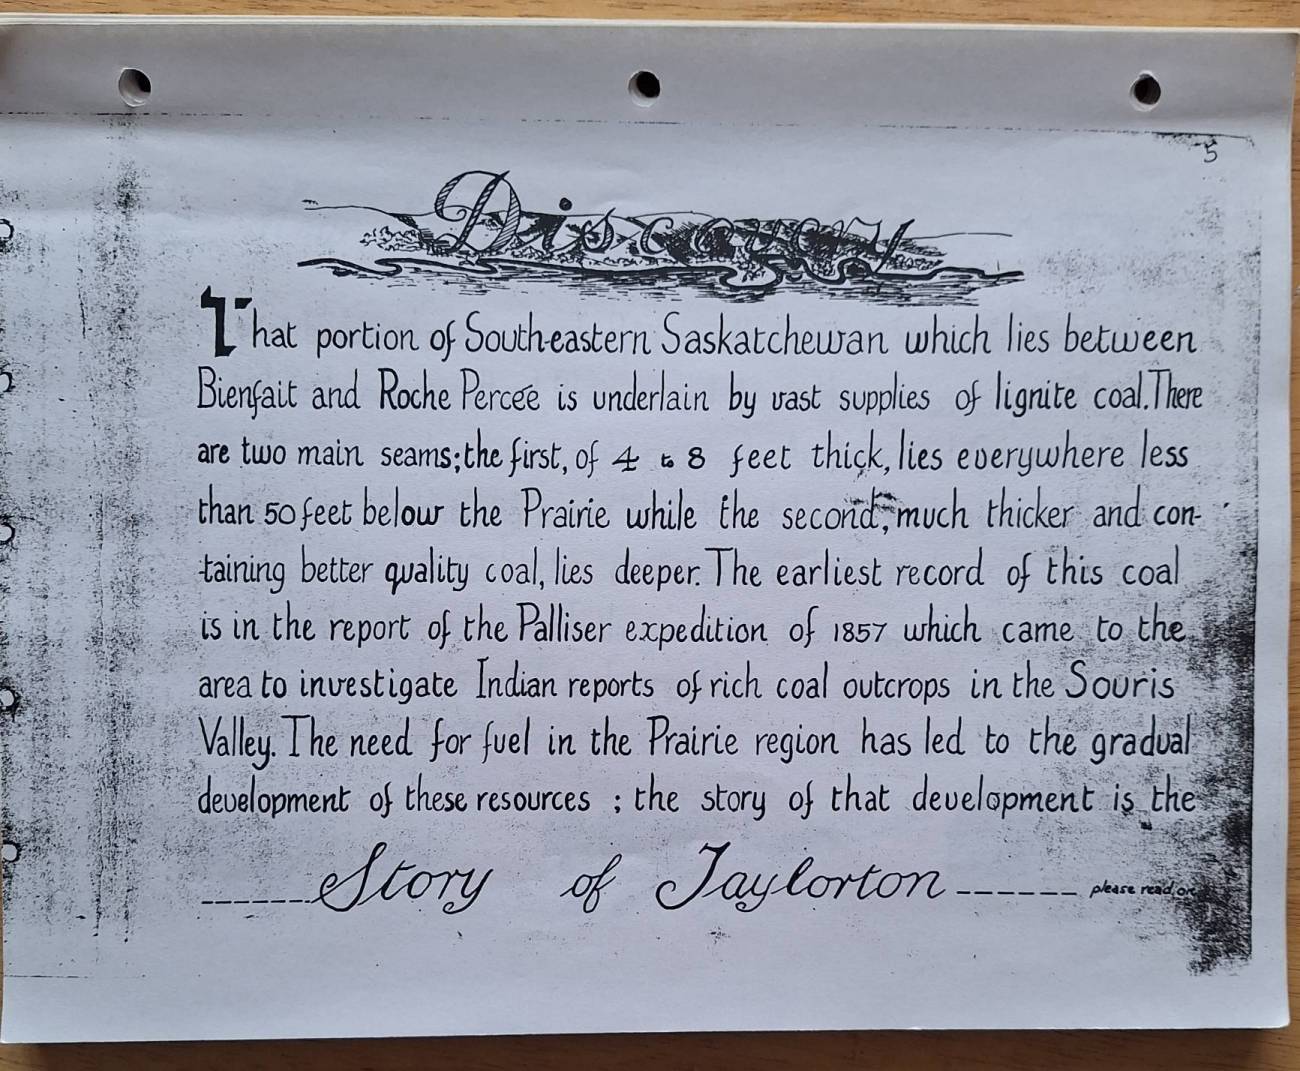 5
Discovery
That portion of South-eastern Saskatchewan which lies between
Bienfait and Roche Percée is underlain by vast supplies of lignite coal. There
are two main seams; the first, of 4 to 8 feet thick, lies everywhere less
than 50 feet below the Prairie while the second, much thicker and con-
-taining better quality coal, lies deeper. The earliest record of this coal
is in the report of the Palliser expedition of 1857 which came to the
area to investigate Indian reports of rich coal outcrops in the Souris
Valley. The need for fuel in the Prairie region has led to the gradual
development of these resources ; the story of that development is the
Story of Taylorton please read on